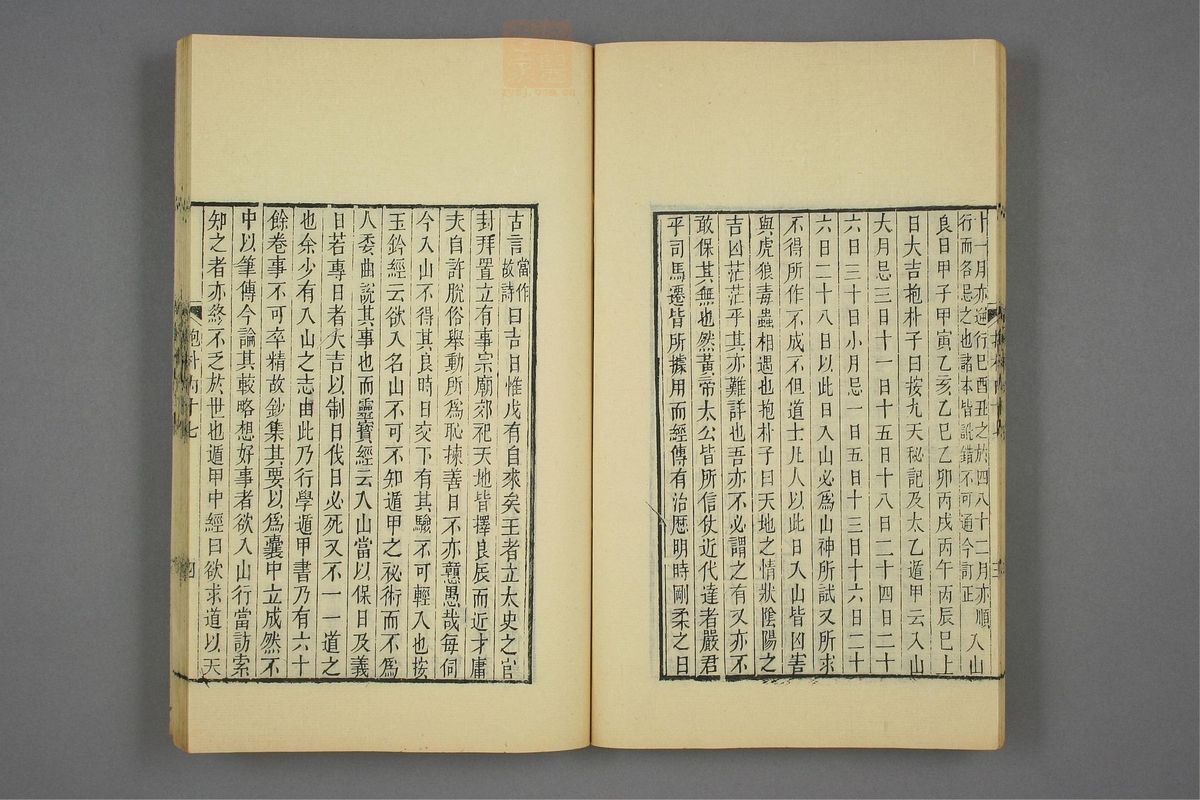 十一月亦逆行巳酉丑之於四八十二月亦順
行而各忌之也諸本皆訛錯不可通今訂正
入山
良日甲子甲寅乙亥乙巳乙卯丙戌丙午丙辰已上
日大吉抱朴子曰按九天秘記及太乙遁甲云入山
大月忌三日十一日十五日十八日二十四日二十
六日三十日小月忌一日五日十三日十六日二十
六日二十八日以此日入山必爲山神所試又所求
不得所作不成不但道士凡人以此日入山皆凶害
與虎狼毒蟲相遇也抱朴子曰天地之情狀陰陽之
吉凶茫茫乎其亦難詳也吾亦不必謂之有又亦不
敢保其無也然黃帝太公皆所信仗近代達者嚴君
平司馬遷皆所據用而經傳有治歷明時剛柔之日
三
古言當作
故詩曰吉日惟戊有自來矣王者立太史之官
封拜置立有事宗廟郊祀天地皆擇良辰而近才庸
夫自許脫俗舉動所爲恥揀善日不亦戇愚哉每伺
今入山不得其良時日交下有其驗不可輕入也按
玉鈐經云欲入名山不可不知遁甲之祕術而不爲
人委曲說其事也而靈寶經云入山當以保日及義
日若專日者大吉以制日伐日必死又不一一道之
也余少有入山之志由此乃行學遁甲書乃有六十
餘卷事不可卒精故鈔集其要以爲囊中立成然不
中以筆傳今論其較略想好事者欲入山行當訪索
知之者亦終不乏於世也遁甲中經曰欲求道以天
抱朴内十七
四